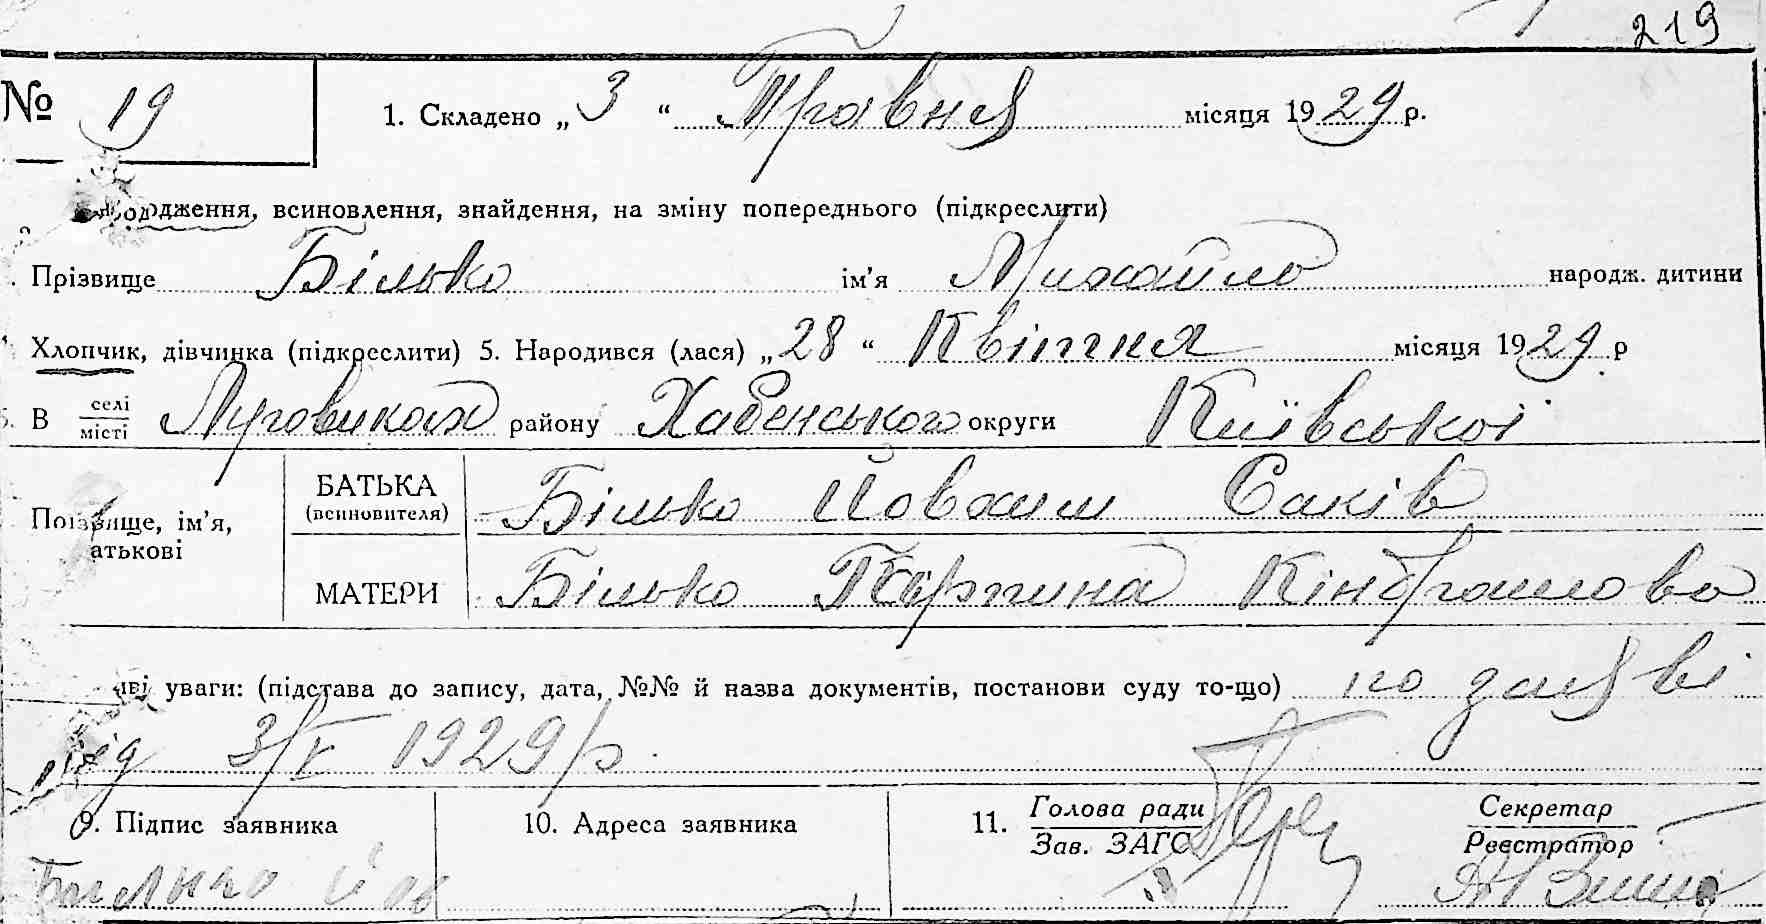 219
№ 19 1. Складено „3“ Травня місяця 1929 р.
одження, всиновлення, знайдення, на зміну попереднього (підкреслити)
Прізвище Білько ім’я Михайло народж. дитини
Хлопчик, дівчинка (підкреслити) 5. Народився (лася) „28“ Квітня місяця 1929 р
В селі Луговиках району Хабенського округи Київської
місті
БАТЬКА Білько Йовхим Саків
(всиновителя)
Прізвище, ім’я,
атькові
МАТЕРИ Білько Кіндратова
ві уваги: (підстава до запису, дата, №№ й назва документів, постанови суду то-що) по заяві
від 3/V 1929 р.
9. Підпис заявника 10. Адреса заявника 11. Голова ради Секретар
Зав. ЗАГС Реєстратор
Билько Йов